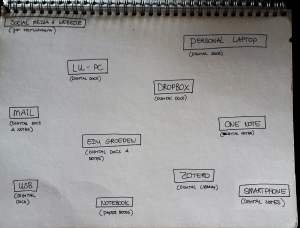 SOCIAL MEDIA & WEBSITE
PERSONAL LAPTOP
(DIGITAL DOCS)
LU-PC
(DIGITAL DOCS)
DROPBOX
(DIGITAL DOCS)
MAIL
(DIGITAL DOCS
& NOTES)
ONE NOTE
(DIGITAL NOTES)
EDU GROEPEN
(DIGITAL DOCS &
NOTES)
ZOTERO
(DIGITAL LIBRARY)
USB
(DIGITAL
DOCS)
NOTEBOOK
(PAPER NOTES)
SMARTPHONE
(DIGITAL NOTES)